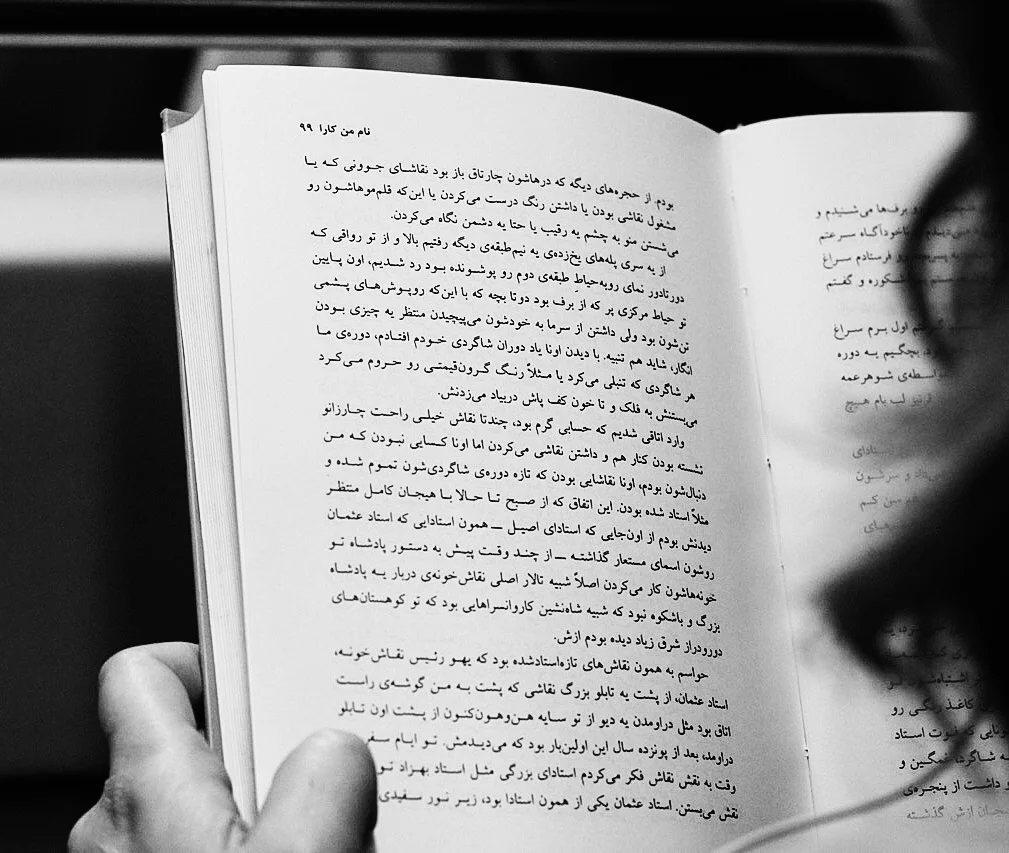 نام من کارا ۹۹
بودم. از حجره‌های دیگه که درهاشون چارتاق باز بود نقاشای جوونی که یا
مشغول نقاشی بودن یا داشتن رنگ درست می‌کردن یا این‌که قلم‌موهاشون رو
می‌شستن منو به چشم یه رقیب یا حتا یه دشمن نگاه می‌کردن.
از یه سری پله‌های یخ‌زده‌ی یه نیم‌طبقه‌ی دیگه رفتیم بالا و از تو رواقی که
دورتادور نمای روبه‌حیاطِ طبقه‌ی دوم رو پوشونده بود رد شدیم، اون پایین
تو حیاط مرکزی پر که از برف بود دوتا بچه که با این‌که روپوش‌های پشمی
تن‌شون بود ولی داشتن از سرما به خودشون می‌پیچیدن منتظر یه چیزی بودن
انگار، شاید هم تنبیه. با دیدن اونا یاد دوران شاگردی خودم افتادم، دوره‌ی ما
هر شاگردی که تنبلی می‌کرد یا مثلاً رنگ گرون‌قیمتی رو حروم می‌کرد
می‌بستنش به فلک و تا خون کف پاش دربیاد می‌زدنش.
وارد اتاقی شدیم که حسابی گرم بود، چندتا نقاش خیلی راحت چارزانو
نشسته بودن کنار هم و داشتن نقاشی می‌کردن اما اونا کسایی نبودن که من
دنبال‌شون بودم، اونا نقاشایی بودن که تازه دوره‌ی شاگردی‌شون تموم شده و
مثلاً استاد شده بودن. این اتفاق که از صبح تا حالا با هیجان کامل منتظر
دیدنش بودم از اون‌جایی که استادای اصیل ـــ همون استادایی که استاد عثمان
روشون اسمای مستعار گذاشته ـــ از چند وقت پیش به دستور پادشاه تو
خونه‌هاشون کار می‌کردن اصلاً شبیه تالار اصلی نقاش‌خونه‌ی دربار یه پادشاه
بزرگ و باشکوه نبود که شبیه شاه‌نشین کاروانسراهایی بود که تو کوهستان‌های
دورودراز شرق زیاد دیده بودم ازش.
حواسم به همون نقاش‌های تازه‌استادشده بود که یهو رئیس نقاش‌خونه،
استاد عثمان، از پشت یه تابلو بزرگ نقاشی که پشت به من گوشه‌ی راست
اتاق بود مثل دراومدن یه دیو از تو سایه هن‌وهون‌کنون از پشت اون تابلو
دراومد، بعد از پونزده سال این اولین‌بار بود که می‌دیدمش. تو ایام
وقت به نقش نقاش فکر می‌کردم استادای بزرگی مثل استاد بهزاد تو
نقش می‌بستن. استاد عثمان یکی از همون استادا بود، زیر نور سفیدی
و برف‌ها می‌شنیدم و
سرعتم
رو فرستادم سراغ
شکوره و گفتم
اول برم سراغ
بچگیم یه دوره
شوهرعمه
لب بام هیچ
رو
استاد
غمگین و
و داشت از پنجره‌ی
ازش گذشته